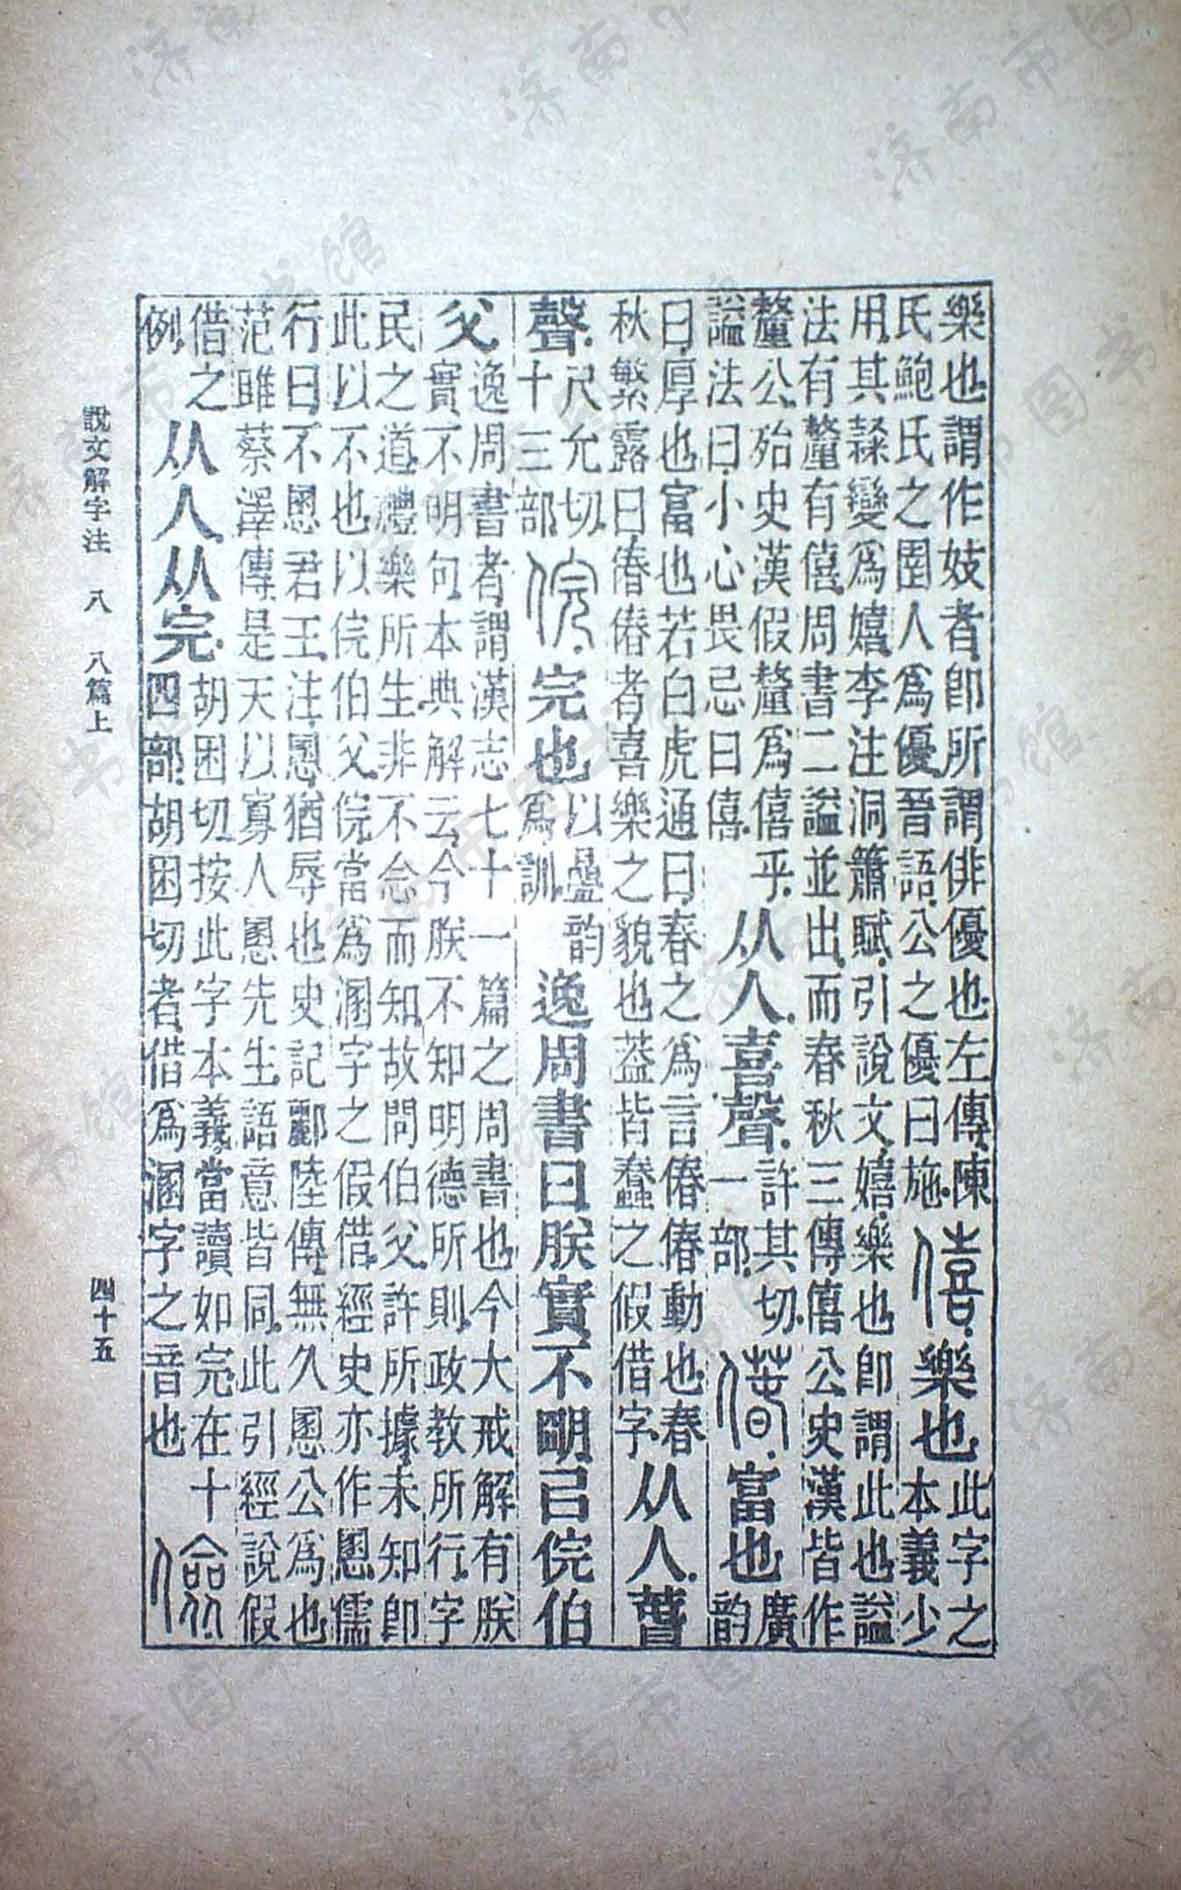 樂也謂作妓者卽所謂俳優也左傳陳
氏鮑氏之圉人爲優晉語公之優曰施僖樂也此字之
本義少
用其隸變爲嬉李注洞簫賦引說文嬉樂也卽謂此也謚
法有釐有僖周書二謚並出而春秋三傳僖公史漢皆作
釐公殆史漢假釐爲僖乎
謚法曰小心畏忌曰僖从人喜聲許其切
一部偆富也廣
韵
曰厚也富也若白虎通曰春之爲言偆偆動也春
秋繁露曰偆偆者喜樂之貌也葢皆蠢之假借字从人萅
聲尺允切
十三部俒完也以曡韵
爲訓逸周書曰朕實不朙己俒伯
父逸周書者謂漢志七十一篇之周書也今大戒解有朕
實不明句本典解云今朕不知明德所則政教所行字
民之道禮樂所生非不念而知故問伯父許所據未知卽
此以不也以俒伯父俒當爲溷字之假借經史亦作慁儒
行曰不慁君王注慁猶辱也史記酈陸傳無久慁公爲也
范雎蔡澤傳是天以寡人慁先生語意皆同此引經說假
借之
例从人从完胡困切按此字本義當讀如完在十
四部胡困切者借爲溷字之音也儉
說文解字注 八 八篇上 四十五
济南市图书馆